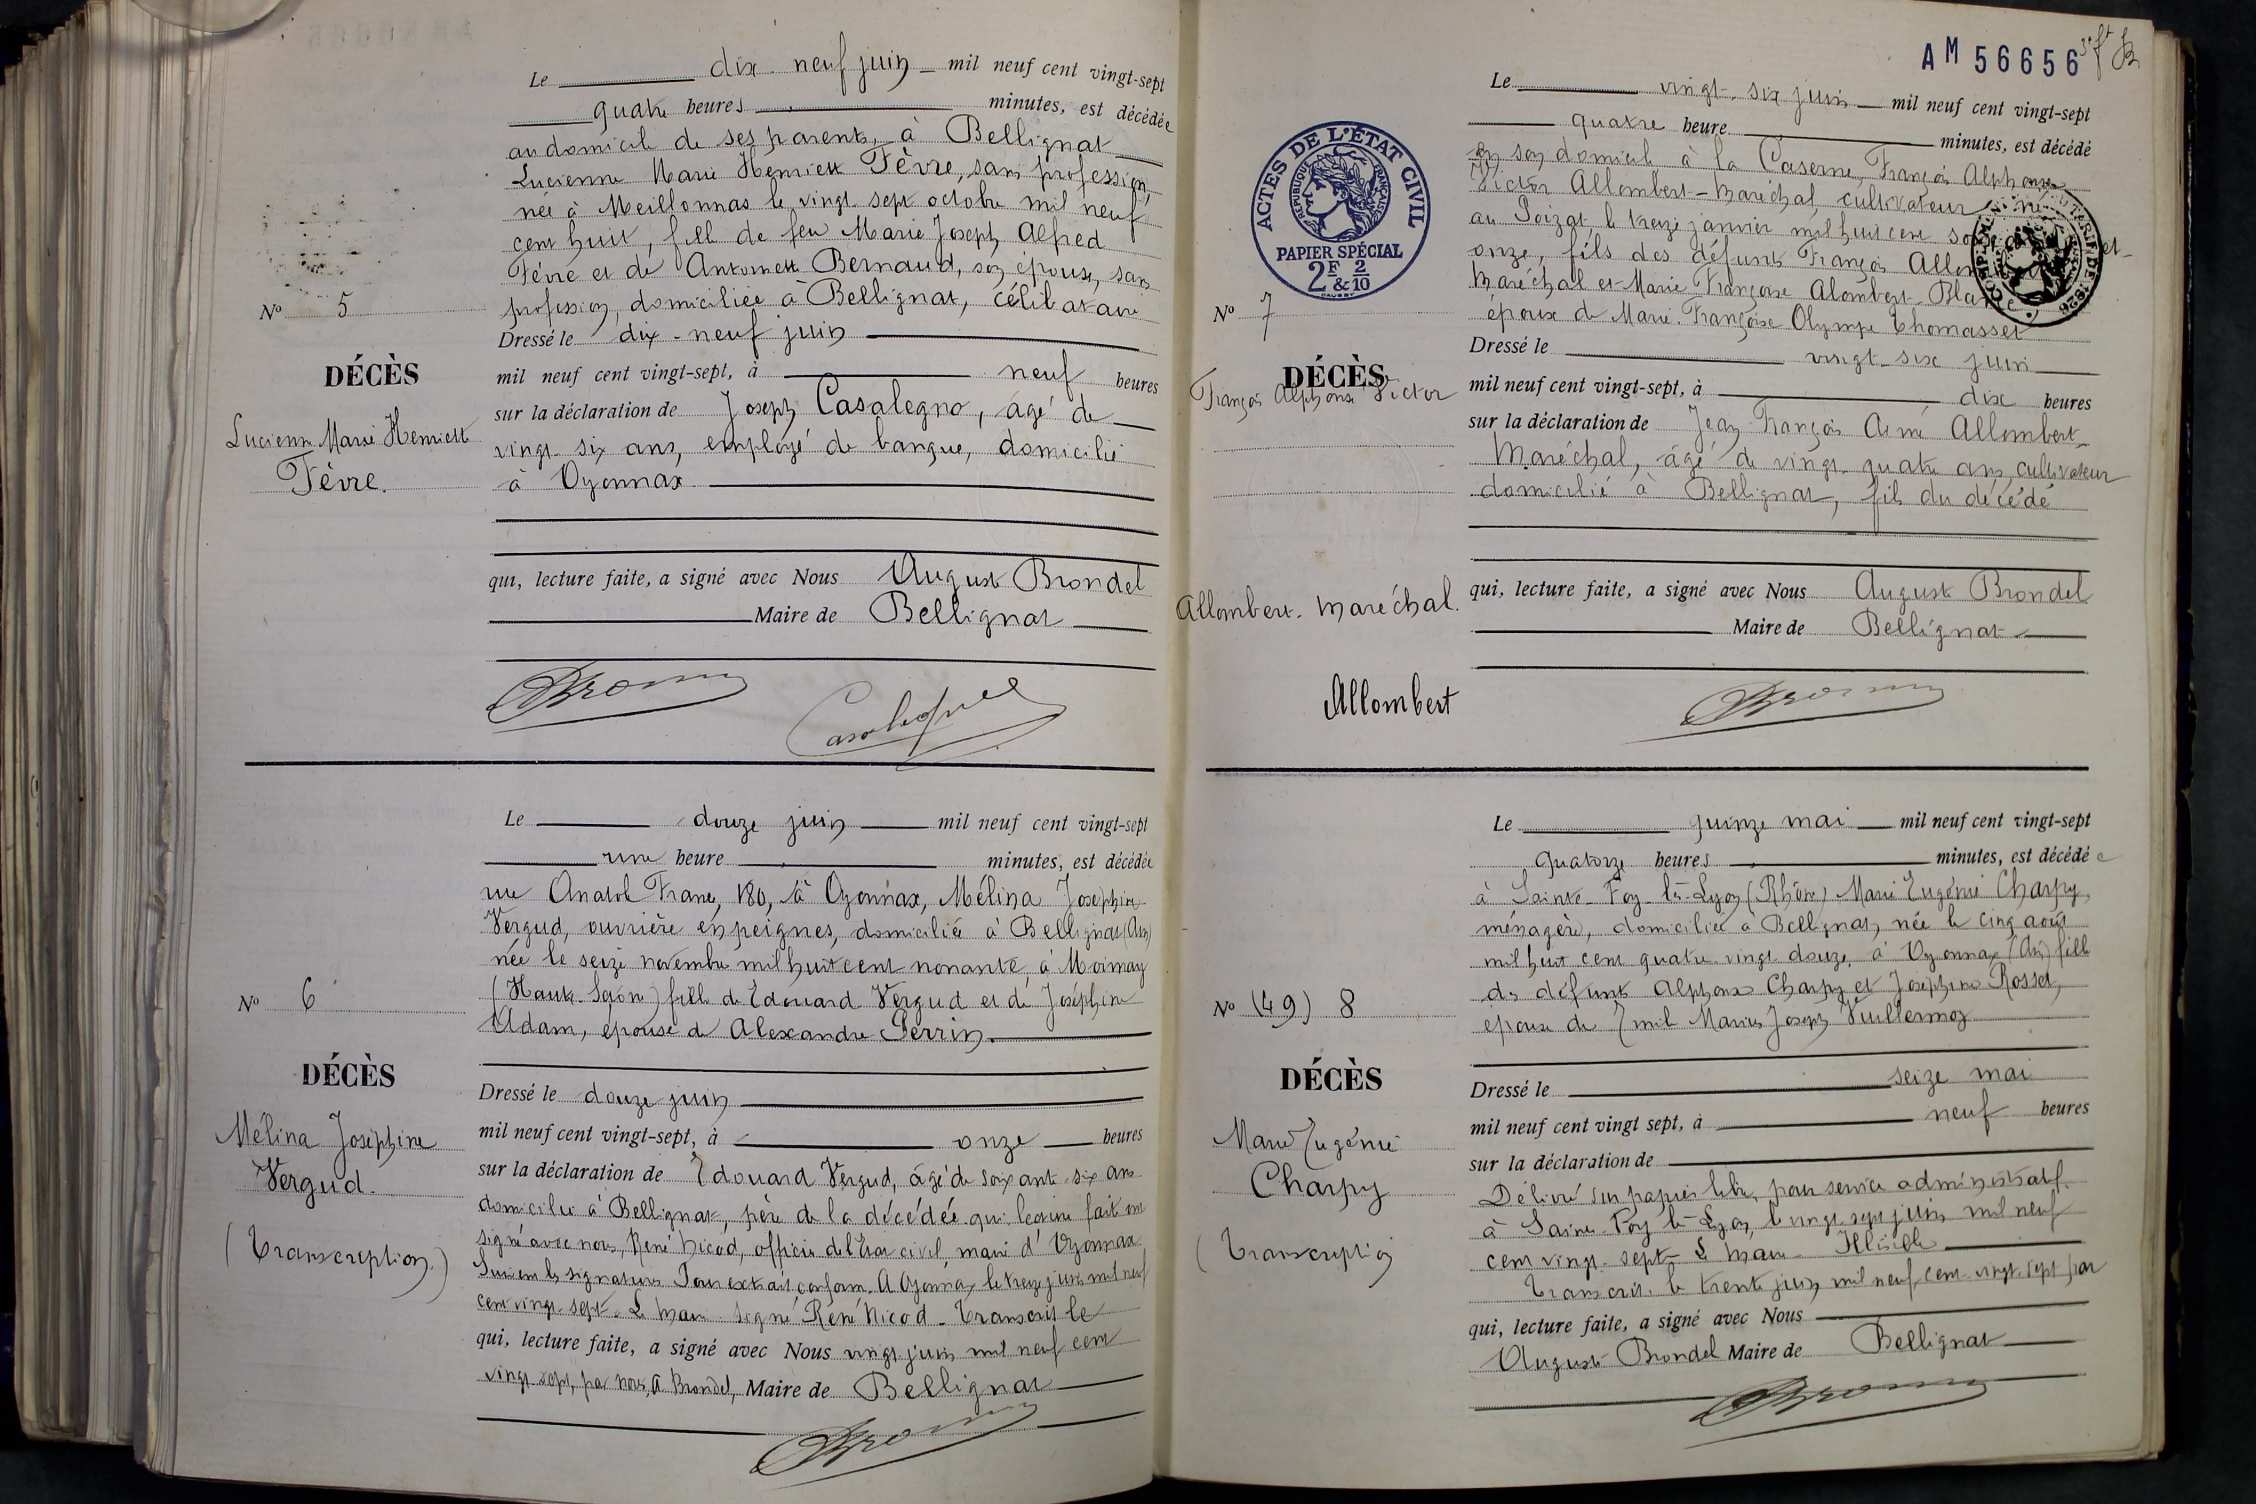 Le dix neuf juin mil neuf cent vingt-sept
quatre heures minutes, est décédée
au domicile de ses parents, à Bellignat
Lucienne Marie Henriette Fèvre, sans profession,
née à Meillonnas le vingt sept octobre mil neuf
cent huit, fille de feu Marie Joseph Alfred
Fèvre et de Antoinette Bernaud, son épouse, sans
profession, domiciliée à Bellignat, célibataire
No 5
Dressé le dix-neuf juin
DÉCÈS
mil neuf cent vingt-sept, à neuf heures
sur la déclaration de Joseph Casalegno, âgé de
Lucienne Marie Henriette
vingt six ans, employé de banque, domicilié
Fèvre.
à Oyonnax
qui, lecture faite, a signé avec Nous Auguste Brondel
Maire de Bellignat
Le douze juin mil neuf cent vingt-sept
une heure minutes, est décédée
rue Anatole France, 180, à Oyonnax, Mélina Joséphine
Vergud, ouvrière en peignes, domiciliée à Bellignat (Ain)
née le seize novembre mil huit cent nonante, à Moimay
(Haute-Saône) fille de Edouard Vergud et de Joséphine
No 6
Adam, épouse de Alexandre Perrin.
DÉCÈS
Dressé le douze juin
Mélina Joséphine
mil neuf cent vingt-sept, à onze heures
Vergud.
sur la déclaration de Edouard Vergud, âgé de soixante-six ans
domicilié à Bellignat, père de la décédée qui lecture faite ont
(Transcription.)
signé avec nous, René Nicod, officier de l'état civil, maire d'Oyonnax
Suivent les signatures Pour extrait conforme. A Oyonnax le treize juin mil neuf
cent vingt-sept. Le Maire signé René Nicod - Transcrit le
qui, lecture faite, a signé avec Nous vingt juin mil neuf cent
vingt sept, par nous, A Brondel, Maire de Bellignat
AM 56656
Le vingt-six juin mil neuf cent vingt-sept
quatre heure minutes, est décédé
en son domicile à la Caserne, François Alphonse
Victor Allombert-Maréchal, cultivateur né
au Poizat, le treize janvier mil huit cent
onze, fils des défunts François
Maréchal et Marie Françoise Alombert-
époux de Marie-Françoise Olympe Thomasset
ACTES DE L'ÉTAT CIVIL
RÉPUBLIQUE FRANÇAISE
PAPIER SPÉCIAL
2F & 2/10
No 7
Dressé le vingt-six juin
DÉCÈS
François Alphonse Victor
mil neuf cent vingt-sept, à dix heures
sur la déclaration de Jean François Aimé Allombert-
Maréchal, âgé de vingt-quatre ans, cultivateur
domicilié à Bellignat, fils du décédé
Allombert-Maréchal.
qui, lecture faite, a signé avec Nous Auguste Brondel
Maire de Bellignat
Allombert
Le quinze mai mil neuf cent vingt-sept
quatorze heures minutes, est décédée
à Sainte-Foy-lès-Lyon (Rhône) Marie Eugénie Charpy,
ménagère, domiciliée à Bellignat, née le cinq août
mil huit cent quatre vingt douze, à Oyonnax (Ain) fille
des défunts Alphonse Charpy et Joséphine Rosset,
No (49) 8
épouse de Emile Marius Joseph Vuillermoz
DÉCÈS
Dressé le seize mai
mil neuf cent vingt sept, à neuf heures
Marie Eugénie
sur la déclaration de
Charpy
Délivré sur papier libre, pour service administratif.
à Sainte-Foy-lès-Lyon, le vingt-sept juin mil neuf
(Transcription
cent vingt-sept Le Maire Illisible
Transcrit le trente juin mil neuf cent vingt-sept par
qui, lecture faite, a signé avec Nous
Auguste Brondel Maire de Bellignat